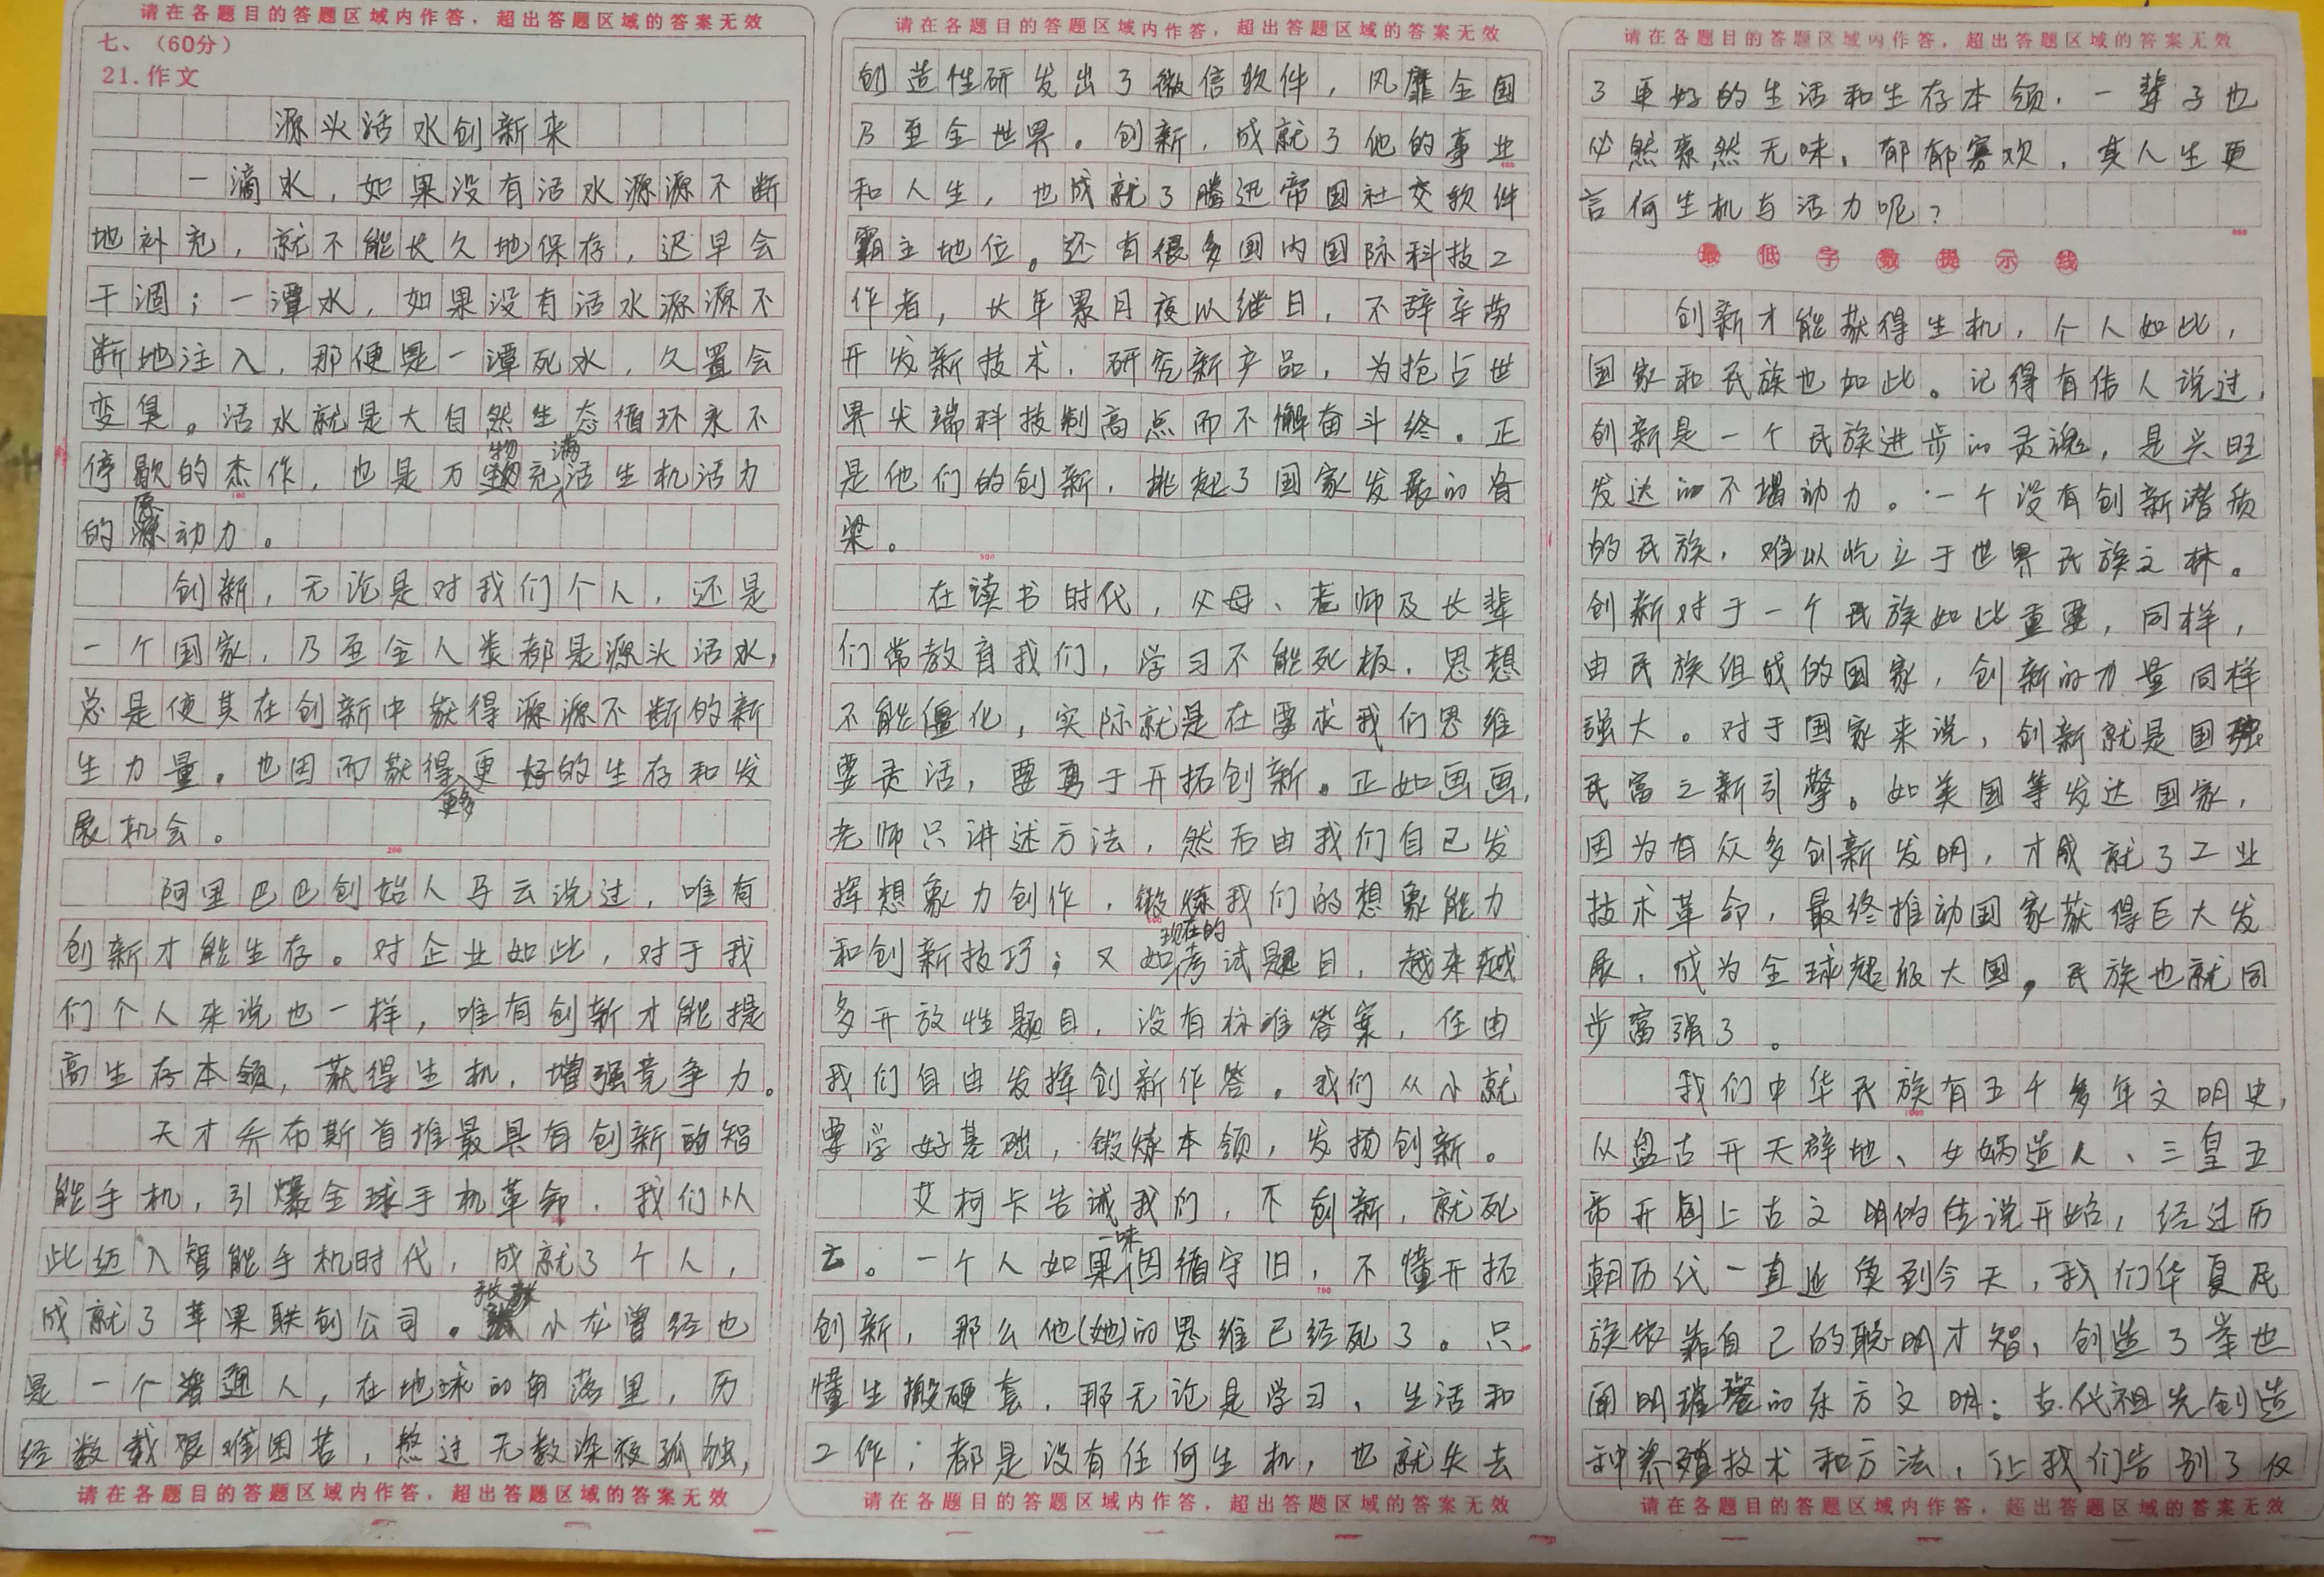 请在各题目的答题区域内作答，超出答题区域的答案无效
七、（60分）
21.作文
源头活水创新来
一滴水，如果没有活水源源不断
地补充，就不能长久地保存，迟早会
干涸；一潭水，如果没有活水源源不
断地注入，那便是一潭死水，久置会
变臭。活水就是大自然生态循环永不
停歇的杰作，也是万物充满活生机活力
100
的原动力。
创新，无论是对我们个人，还是
一个国家，乃至全人类都是源头活水，
总是使其在创新中获得源源不断的新
生力量。也因而获得更多更好的生存和发
展机会。
200
阿里巴巴创始人马云说过，唯有
创新才能生存。对企业如此，对于我
们个人来说也一样，唯有创新才能提
高生存本领，获得生机，增强竞争力。
天才乔布斯首推最具有创新的智
能手机，引爆全球手机革命，我们从
此迈入智能手机时代，成就了个人，
成就了苹果联创公司。张小龙曾经也
是一个普通人，在地球的角落里，历
经数载艰难困苦，熬过无数深夜孤独，
请在各题目的答题区域内作答，超出答题区域的答案无效
请在各题目的答题区域内作答，超出答题区域的答案无效
创造性研发出了微信软件，风靡全国
乃至全世界。创新，成就了他的事业
400
和人生，也成就了腾迅帝国社交软件
霸主地位。还有很多国内国际科技工
作者，长年累月夜以继日，不辞辛劳
开发新技术，研究新产品，为抢占世
界尖端科技制高点而不懈奋斗终。正
是他们的创新，挑起了国家发展的脊
梁。
500
在读书时代，父母、老师及长辈
们常教育我们，学习不能死板，思想
不能僵化，实际就是在要求我们思维
要灵活，要勇于开拓创新。正如画画，
老师只讲述方法，然后由我们自己发
挥想象力创作，锻炼我们的想象能力
600
和创新技巧；又如现在的考试题目，越来越
多开放性题目，没有标准答案，任由
我们自由发挥创新作答。我们从小就
要学好基础，锻炼本领，发扬创新。
艾柯卡告诫我们，不创新，就死
亡。一个人如果一味因循守旧，不懂开拓
700
创新，那么他(她)的思维已经死了。只
懂生搬硬套，那无论是学习、生活和
工作；都是没有任何生机，也就失去
请在各题目的答题区域内作答，超出答题区域的答案无效
请在各题目的答题区域内作答，超出答题区域的答案无效
了更好的生活和生存本领，一辈子也
必然索然无味，郁郁寡欢，其人生更
言何生机与活力呢？
800
最低字数提示线
创新才能获得生机，个人如此，
国家和民族也如此。记得有伟人说过，
创新是一个民族进步的灵魂，是兴旺
发达的不竭动力。一个没有创新潜质
的民族，难以屹立于世界民族之林。
创新对于一个民族如此重要，同样，
由民族组成的国家，创新的力量同样
强大。对于国家来说，创新就是国强
民富之新引擎。如美国等发达国家，
因为有众多创新发明，才成就了工业
技术革命，最终推动国家获得巨大发
展，成为全球超级大国，民族也就同
步富强了。
我们中华民族有五千多年文明史，
1000
从盘古开天辟地、女娲造人、三皇五
帝开创上古文明的传说开始，经过历
朝历代一直延续到今天，我们华夏民
族依靠自己的聪明才智，创造了举世
闻明璀璨的东方文明：古代祖先创造
种养殖技术和方法，让我们告别了仅
请在各题目的答题区域内作答，超出答题区域的答案无效